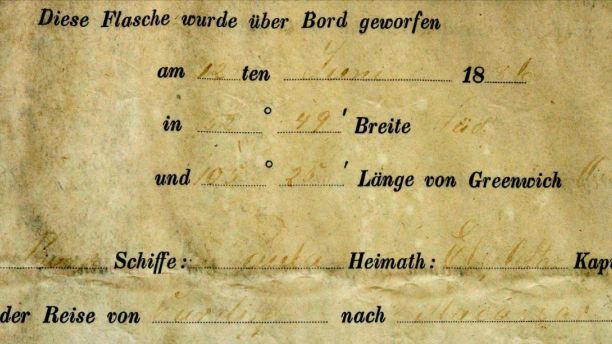 Diese Flasche wurde über Bord geworfen
am 12 ten Juni 18
in ° 49 ' Breite Süd
und 105 ° 25 ' Länge von Greenwich
Schiffe: Paula Heimath: Elsfleth
der Reise von Cardiff nach